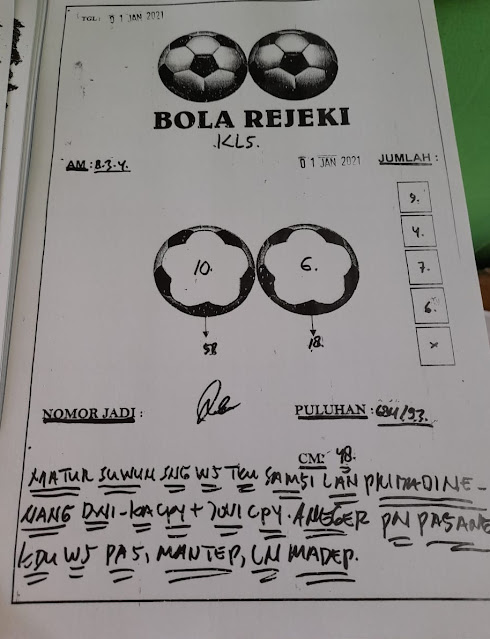 TGL: 0 1 JAN 2021
BOLA REJEKI
KLS.
AM : 8.3.4.
0 1 JAN 2021
JUMLAH :
9.
4.
7.
6.
x
10.
6.
58
18.
NOMOR JADI :
PULUHAN :
CM: 48.
MATUR SUWUN SNG WS TKU SAMSI LAN
NANG DWI-KA CPY + JUNI CPY. ANGGER PN PASANG
KDU WS PAS, MANTEP, LN MADEP.